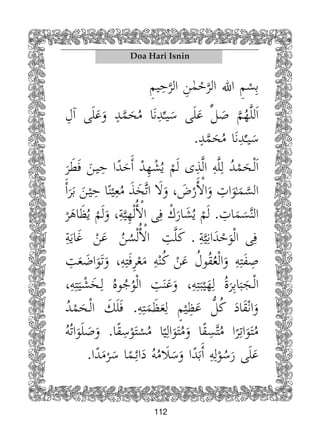 Doa Hari Isnin
بِسْمِ الله الرَّحْمٰنِ الرَّحِيمِ
اَللَّهُمَّ صَلِّ عَلَى سَيِّدِنَا مُحَمَّدٍ وَعَلَى آلِ
سَيِّدِنَا مُحَمَّدٍ.
اَلْحَمْدُ لِلَّهِ الَّذِى لَمْ يُشْهِدْ أَحَدًا حِينَ فَطَرَ
السَّمَوَاتِ وَالْأَرْضَ، وَلَا اتَّخَذَ مُعِيْنًا حِيْنَ بَرَأَ
النَّسَمَاتِ. لَمْ يُشَارَكْ فِى الْأُلُهِيَّةِ، وَلَمْ يُظَاهَرْ
فِى الْوَحْدَانِيَّةِ . كَلَّتِ الْأَلْسُنُ عَنْ غَايَةِ
صِفَتِهِ، وَالْعُقُولُ عَنْ كُنْهِ مَعْرِفَتِهِ، وَتَوَاضَعَتِ
الْجَبَابِرَةُ لِهَيْبَتِهِ، وَعَنَتِ الْوُجُوهُ لِخَشْيَتِهِ،
وَانْقَادَ كُلُّ عَظِيْمٍ لِعَظَمَتِهِ. فَلَكَ الْحَمْدُ
مُتَوَاتِرًا مُتَّسِقًا وَمُتَوَالِيًا مُسْتَوْسِقًا. وَصَلَوَاتُهُ
عَلَى رَسُوْلِهِ أَبَدًا وَسَلاَمُهُ دَائِمًا سَرْمَدًا.
112